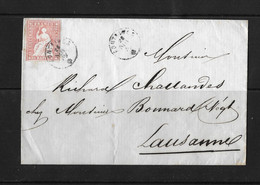 Monsieur
Richard Challandes
chez Monsieur Bonnard Negt
Lausanne